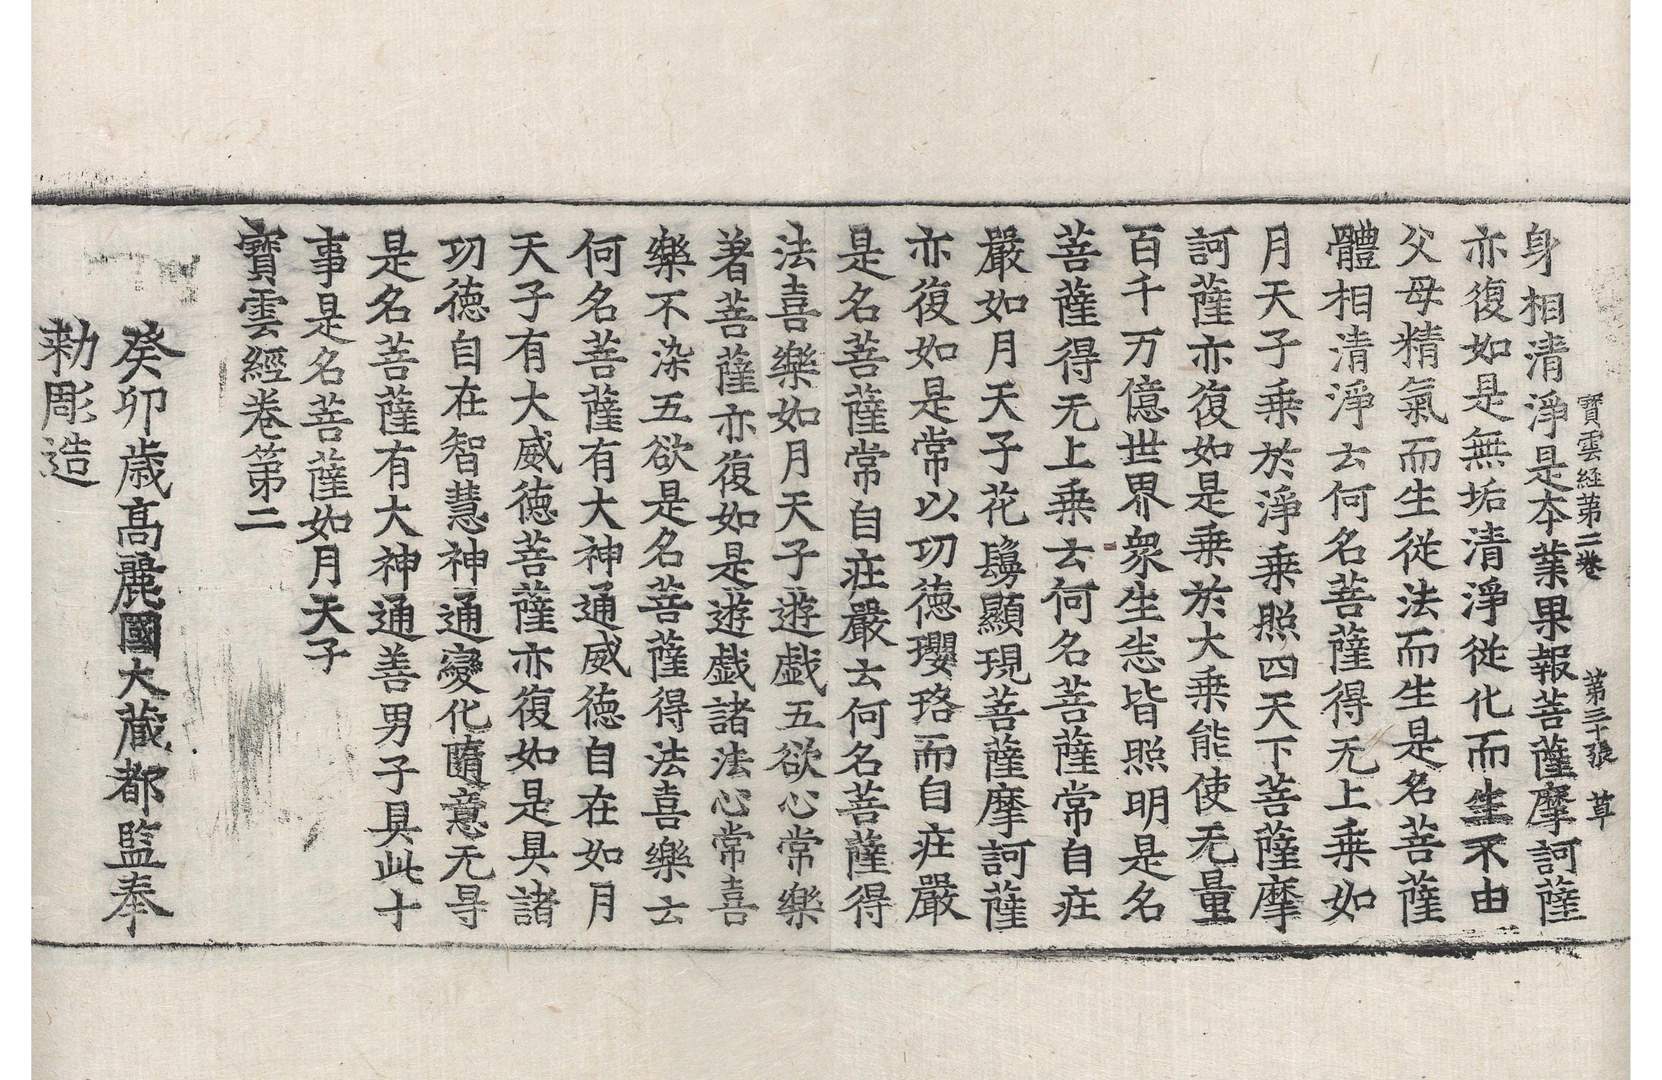 寶雲経第二卷 第三十張 草
身相清淨是本業果報菩薩摩訶薩
亦復如是無垢清淨從化而生不由
父母精氣而生從法而生是名菩薩
體相清淨云何名菩薩得无上乗如
月天子乗於淨乗照四天下菩薩摩
訶薩亦復如是乗於大乗能使无量
百千万億世界衆生悉皆照明是名
菩薩得无上乗云何名菩薩常自疘
嚴如月天子花鬘顯現菩薩摩訶薩
亦復如是常以功徳瓔珞而自疘嚴
是名菩薩常自疘嚴云何名菩薩得
法喜樂如月天子遊戯五欲心常樂
著菩薩亦復如是遊戯諸法心常喜
樂不染五欲是名菩薩得法喜樂云
何名菩薩有大神通威徳自在如月
天子有大威徳菩薩亦復如是具諸
功徳自在智慧神通變化隨意无㝵
是名菩薩有大神通善男子具此十
事是名菩薩如月天子
寶雲經卷第二
癸卯歳髙麗國大蔵都監奉
勅彫造